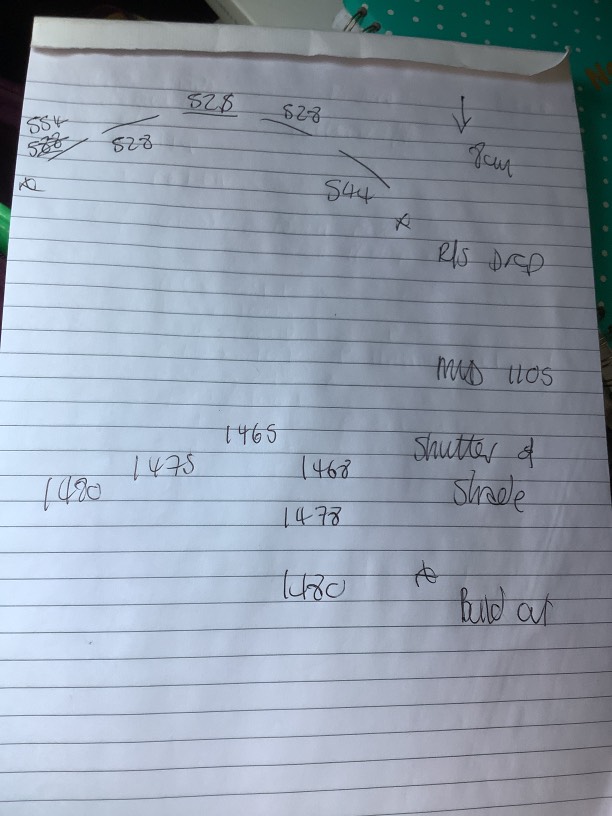 528
528
554
528
8cm
544
R/S DROP
MID 1105
1465
Shutter &
1475
1468
1480
Shade
1478
1480
Build out